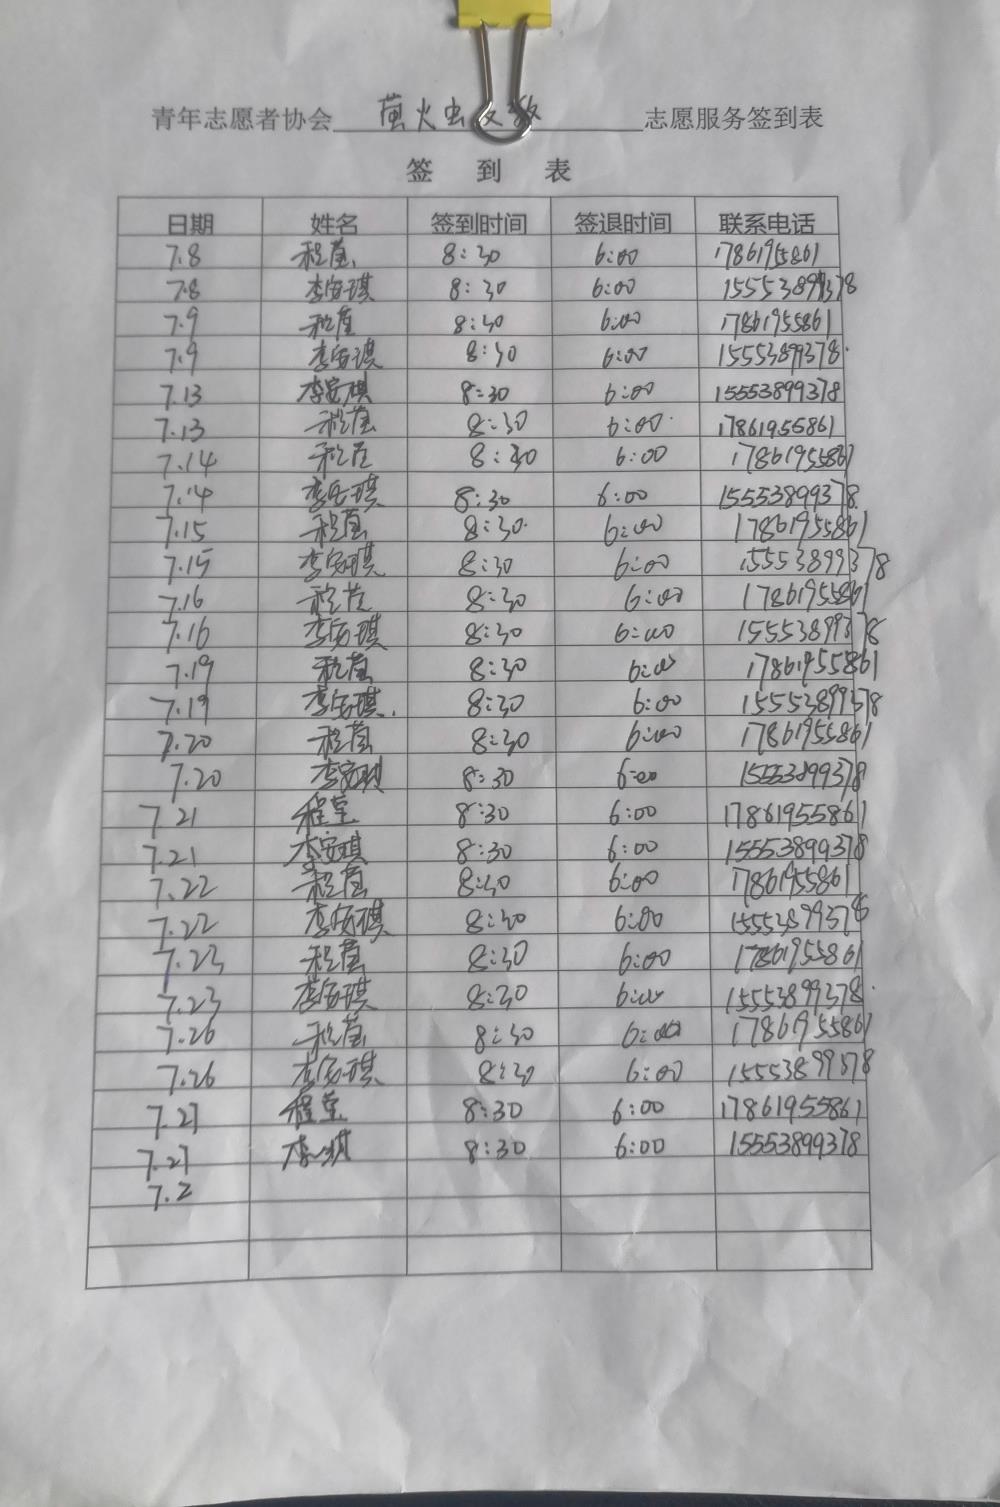 青年志愿者协会 萤火虫支教 志愿服务签到表
签 到 表
日期 姓名 签到时间 签退时间 联系电话
7.8 程萤 8:30 6:00 17861955861
7.8 李安琪 8:30 6:00 15553899378
7.9 程萤 8:30 6:00 17861955861
7.9 李安琪 8:30 6:00 15553899378
7.13 李安琪 8:30 6:00 15553899378
7.13 程萤 8:30 6:00 17861955861
7.14 程萤 8:30 6:00 17861955861
7.14 李安琪 8:30 6:00 15553899378
7.15 程萤 8:30 6:00 17861955861
7.15 李安琪 8:30 6:00 15553899378
7.16 程萤 8:30 6:00 17861955861
7.16 李安琪 8:30 6:00 15553899378
7.19 程萤 8:30 6:00 17861955861
7.19 李安琪 8:30 6:00 15553899378
7.20 程萤 8:30 6:00 17861955861
7.20 李安琪 8:30 6:00 15553899378
7.21 程莹 8:30 6:00 17861955861
7.21 李安琪 8:30 6:00 15553899378
7.22 程萤 8:30 6:00 17861955861
7.22 李安琪 8:30 6:00 15553899378
7.23 程萤 8:30 6:00 17861955861
7.23 李安琪 8:30 6:00 15553899378
7.26 程萤 8:30 6:00 17861955861
7.26 李安琪 8:30 6:00 15553899378
7.27 程莹 8:30 6:00 17861955861
7.27 李安琪 8:30 6:00 15553899378
7.2